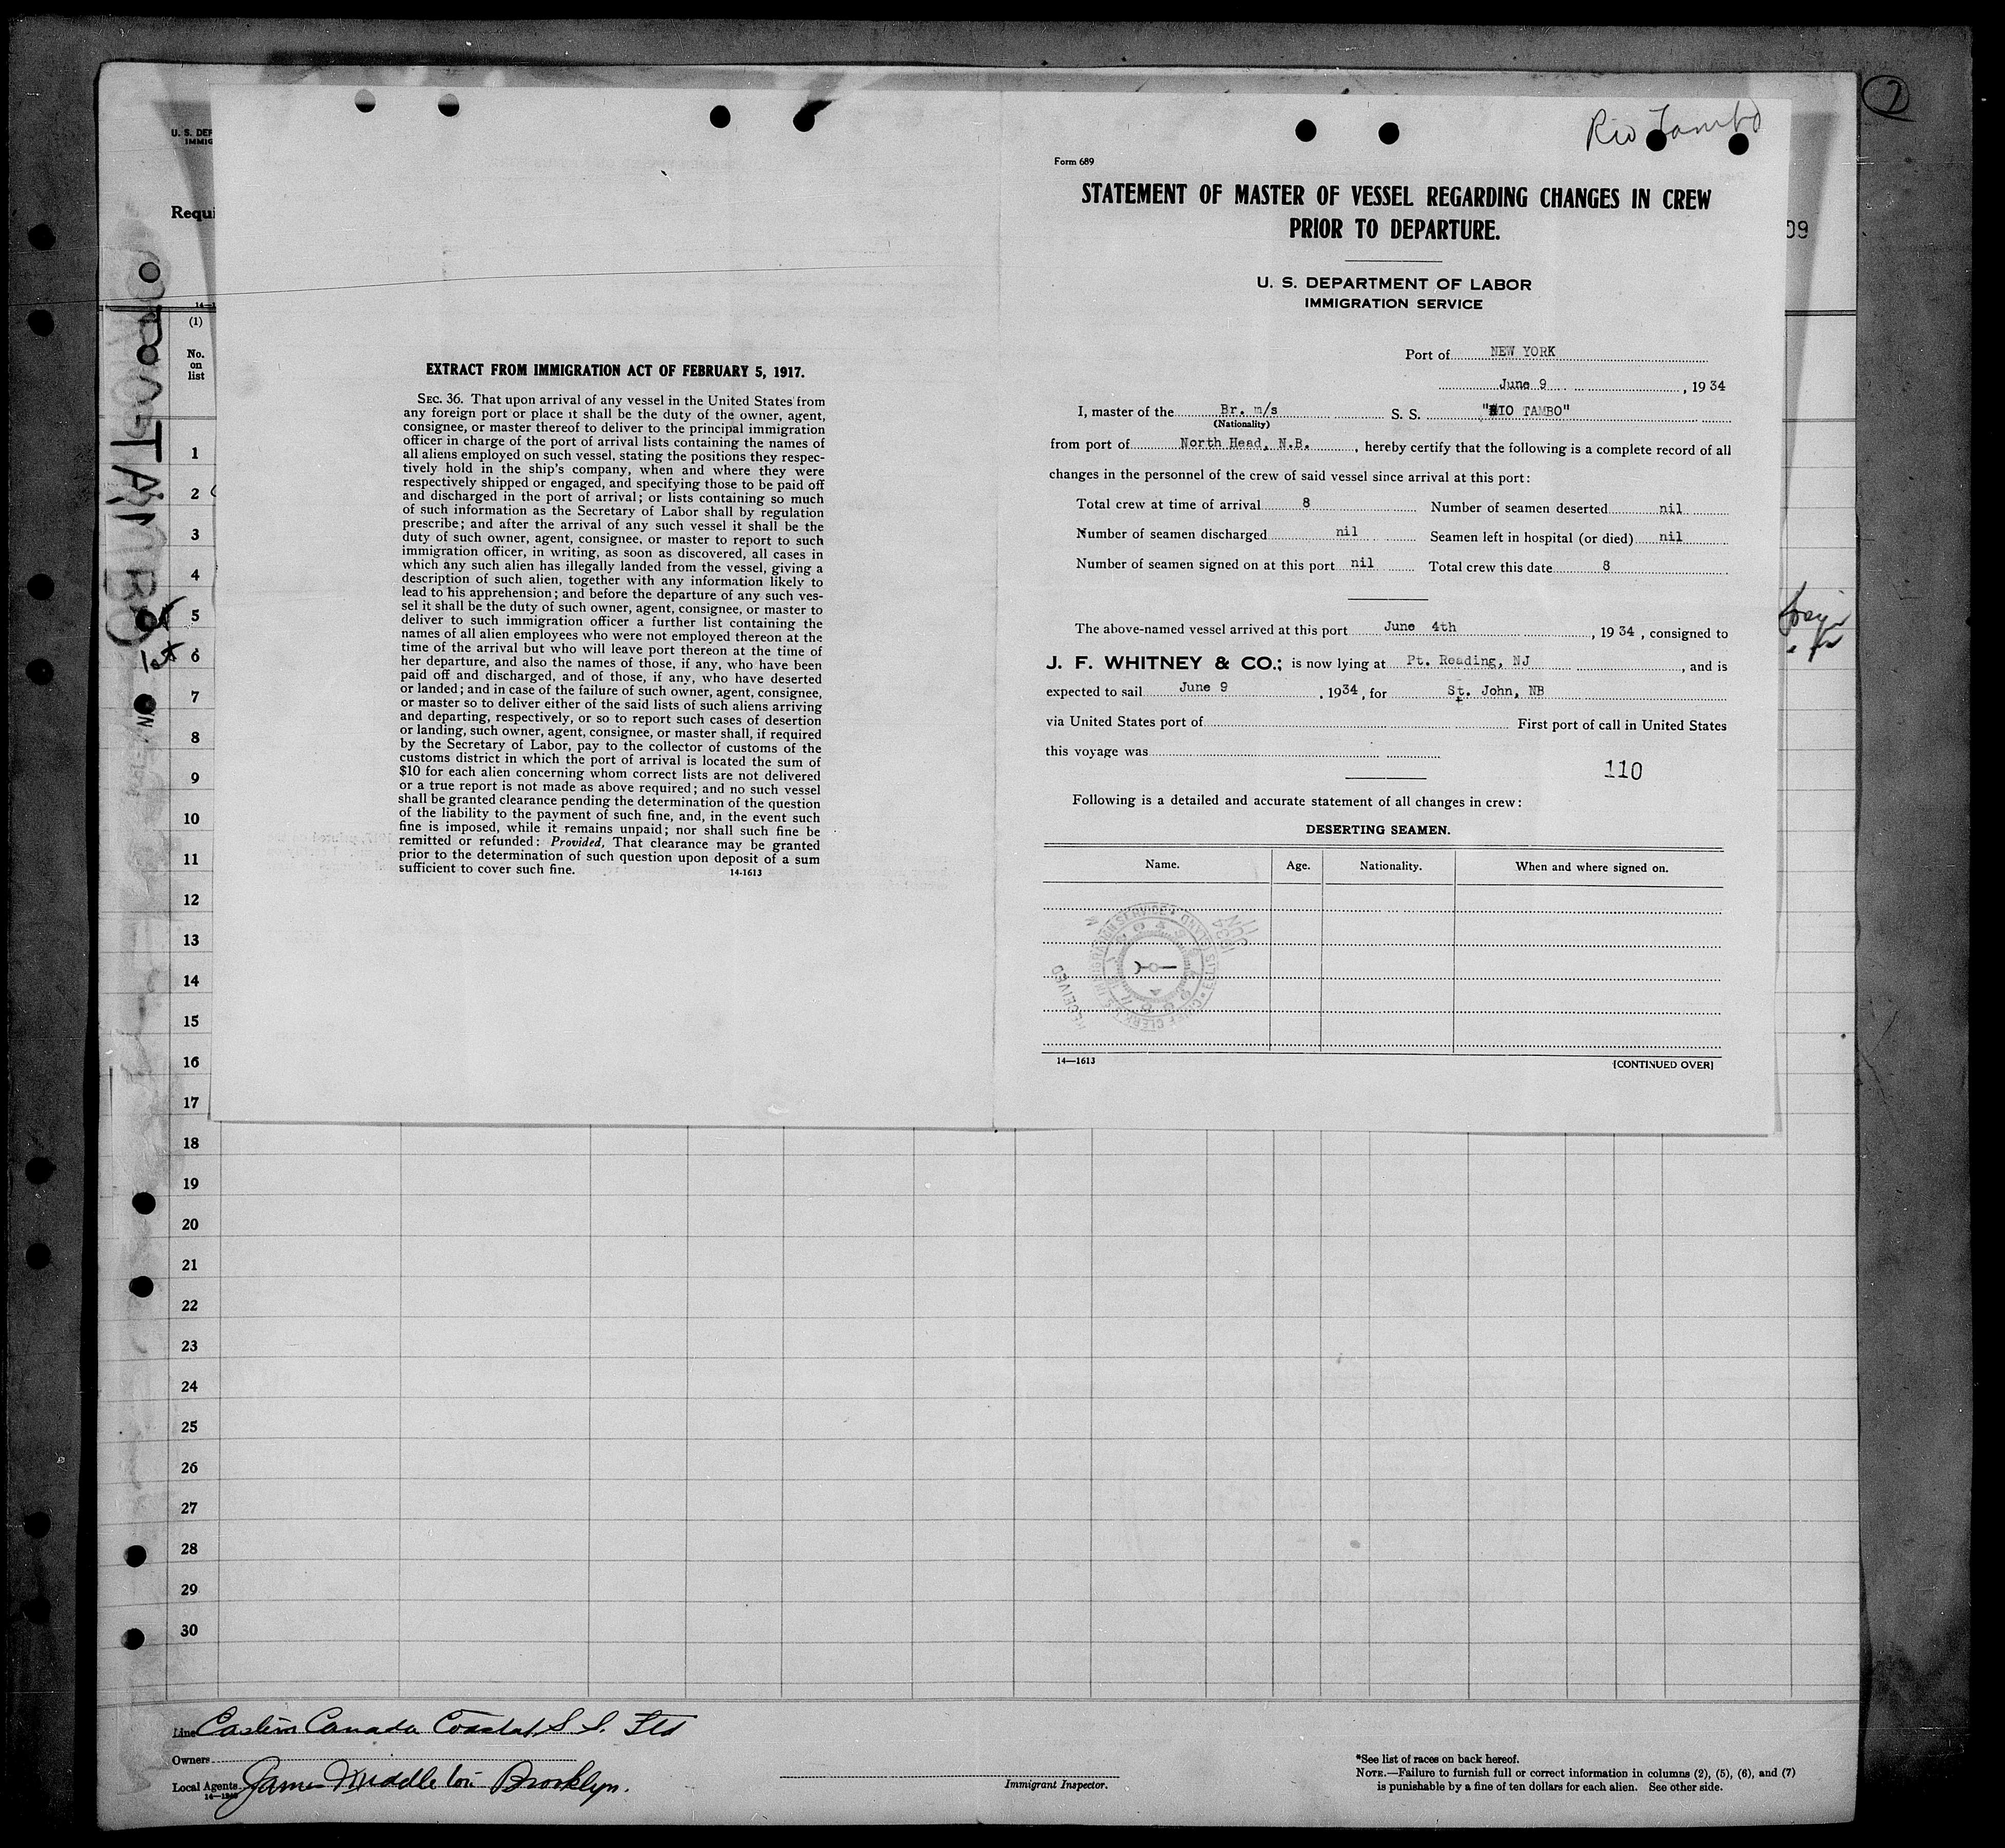 U. S. DEP
IMMIG
Requi
14—1
(1)
No.
on
list
1
2
3
4
5
6
7
8
9
10
11
12
13
14
15
16
17
18
19
20
21
22
23
24
25
26
27
28
29
30
TAMBO
EXTRACT FROM IMMIGRATION ACT OF FEBRUARY 5, 1917.
SEC. 36. That upon arrival of any vessel in the United States from
any foreign port or place it shall be the duty of the owner, agent,
consignee, or master thereof to deliver to the principal immigration
officer in charge of the port of arrival lists containing the names of
all aliens employed on such vessel, stating the positions they respec-
tively hold in the ship's company, when and where they were
respectively shipped or engaged, and specifying those to be paid off
and discharged in the port of arrival; or lists containing so much
of such information as the Secretary of Labor shall by regulation
prescribe; and after the arrival of any such vessel it shall be the
duty of such owner, agent, consignee, or master to report to such
immigration officer, in writing, as soon as discovered, all cases in
which any such alien has illegally landed from the vessel, giving a
description of such alien, together with any information likely to
lead to his apprehension; and before the departure of any such ves-
sel it shall be the duty of such owner, agent, consignee, or master to
deliver to such immigration officer a further list containing the
names of all alien employees who were not employed thereon at the
time of the arrival but who will leave port thereon at the time of
her departure, and also the names of those, if any, who have been
paid off and discharged, and of those, if any, who have deserted
or landed; and in case of the failure of such owner, agent, consignee,
or master so to deliver either of the said lists of such aliens arriving
and departing, respectively, or so to report such cases of desertion
or landing, such owner, agent, consignee, or master shall, if required
by the Secretary of Labor, pay to the collector of customs of the
customs district in which the port of arrival is located the sum of
$10 for each alien concerning whom correct lists are not delivered
or a true report is not made as above required; and no such vessel
shall be granted clearance pending the determination of the question
of the liability to the payment of such fine, and, in the event such
fine is imposed, while it remains unpaid; nor shall such fine be
remitted or refunded: Provided, That clearance may be granted
prior to the determination of such question upon deposit of a sum
sufficient to cover such fine. 14-1613
Rio Tambo
Form 689
STATEMENT OF MASTER OF VESSEL REGARDING CHANGES IN CREW
PRIOR TO DEPARTURE.
U. S. DEPARTMENT OF LABOR
IMMIGRATION SERVICE
Port of NEW YORK
June 9, 1934
I, master of the Br. m/s S. S. "RIO TAMBO"
(Nationality)
from port of North Head, N.B., hereby certify that the following is a complete record of all
changes in the personnel of the crew of said vessel since arrival at this port:
Total crew at time of arrival 8 Number of seamen deserted nil
Number of seamen discharged nil Seamen left in hospital (or died) nil
Number of seamen signed on at this port nil Total crew this date 8
The above-named vessel arrived at this port June 4th, 1934, consigned to
J. F. WHITNEY & CO.; is now lying at Pt. Reading, NJ, and is
expected to sail June 9, 1934, for St. John, NB
via United States port of First port of call in United States
this voyage was
110
Following is a detailed and accurate statement of all changes in crew:
DESERTING SEAMEN.
Name. Age. Nationality. When and where signed on.
RECEIVED
14—1613 [CONTINUED OVER]
09
Line Eastern Canada Coastal S. S. Ltd
Owners
Local Agents James Middleton Brooklyn.
Immigrant Inspector.
*See list of races on back hereof.
NOTE.—Failure to furnish full or correct information in columns (2), (5), (6), and (7)
is punishable by a fine of ten dollars for each alien. See other side.